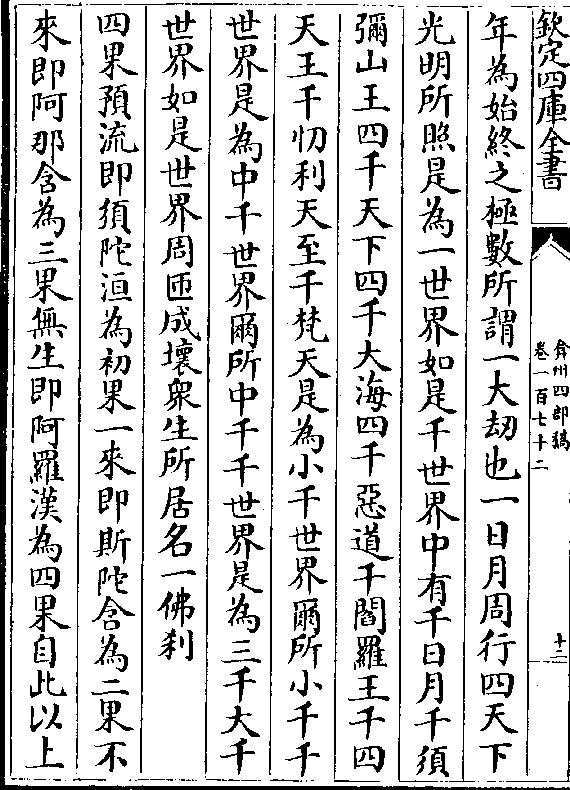 欽定四庫全書
弇州四部稿
卷一百七十二
十二
年為始終之極數所謂一大劫也一日月周行四天下
光明所照是為一世界如是千世界中有千日月千須
彌山王四千天下四千大海四千惡道千閻羅王千四
天王千忉利天至千梵天是為小千世界爾所小千千
世界是為中千世界爾所中千千世界是為三千大千
世界如是世界周匝成壞衆生所居名一佛刹
四果預流即須陀洹為初果一來即斯陀含為二果不
來即阿那含為三果無生即阿羅漢為四果自此以上